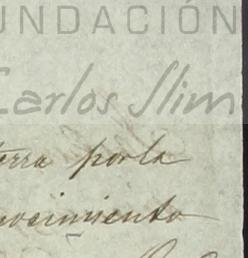 UNDACIÓN
Carlos Slim
erra porla
nocimiento